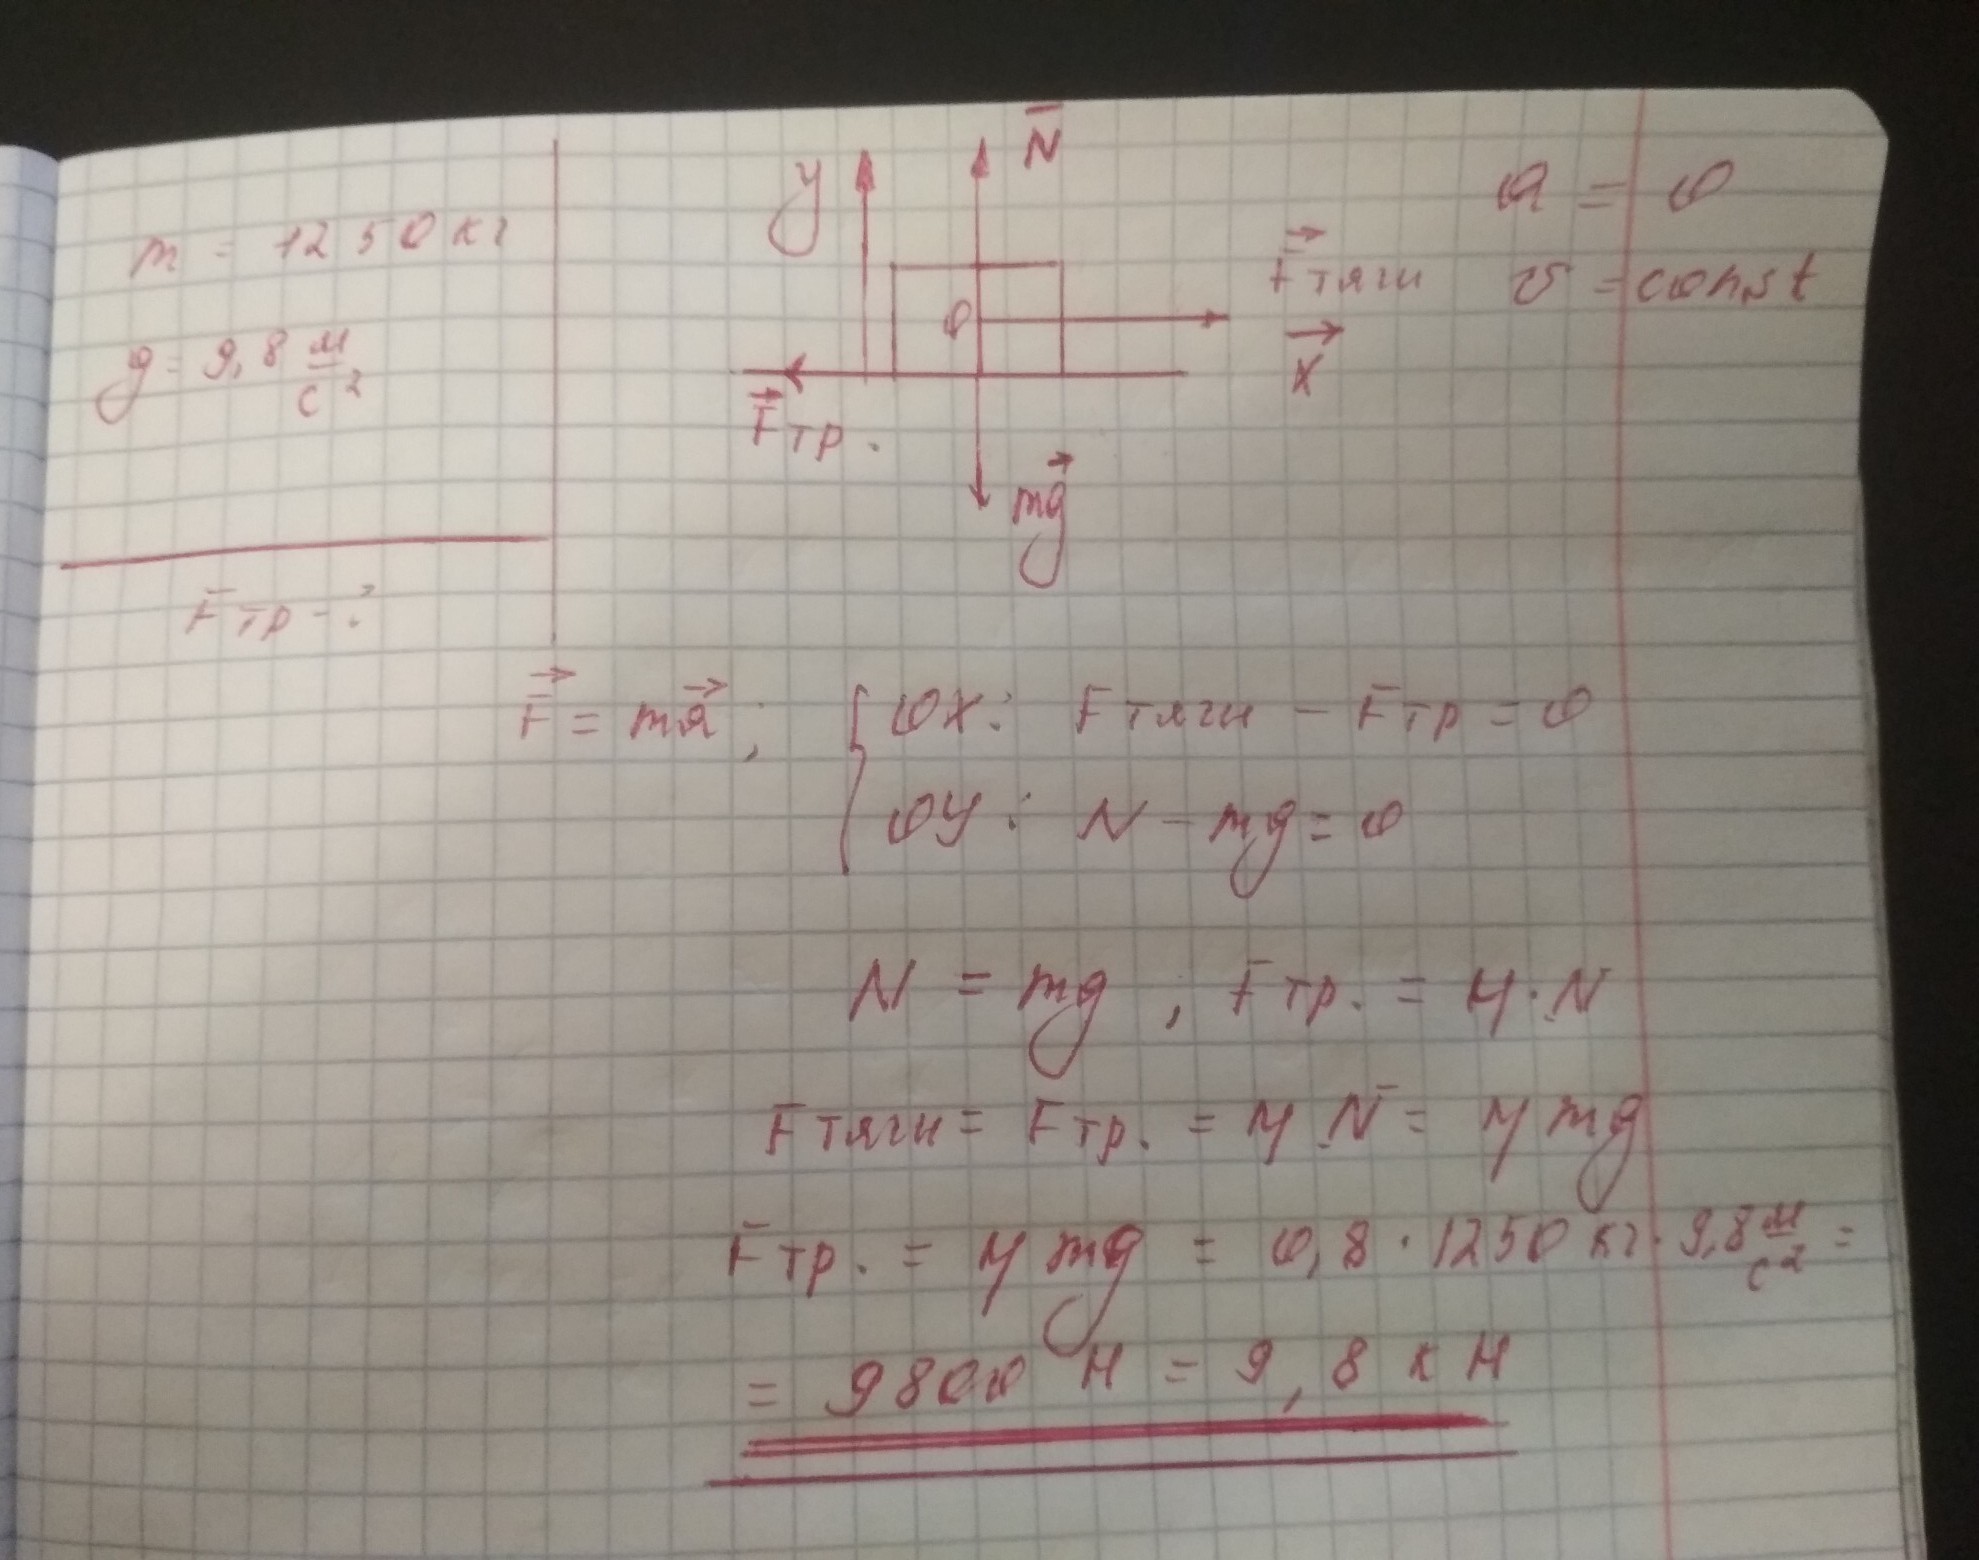 m = 1250 кг
g = 9,8 м/с²
Fтр - ?
y
N̄
F⃗тяги
x⃗
0
F⃗тр.
mg⃗
a = 0
v = const
F⃗ = ma⃗ ; { OX: Fтяги - Fтр = 0
OY: N - mg = 0
N = mg , Fтр. = μ · N
Fтяги = Fтр. = μ N = μ mg
Fтр. = μ mg = 0,8 · 1250 кг · 9,8 м/с² =
= 9800 Н = 9,8 кН